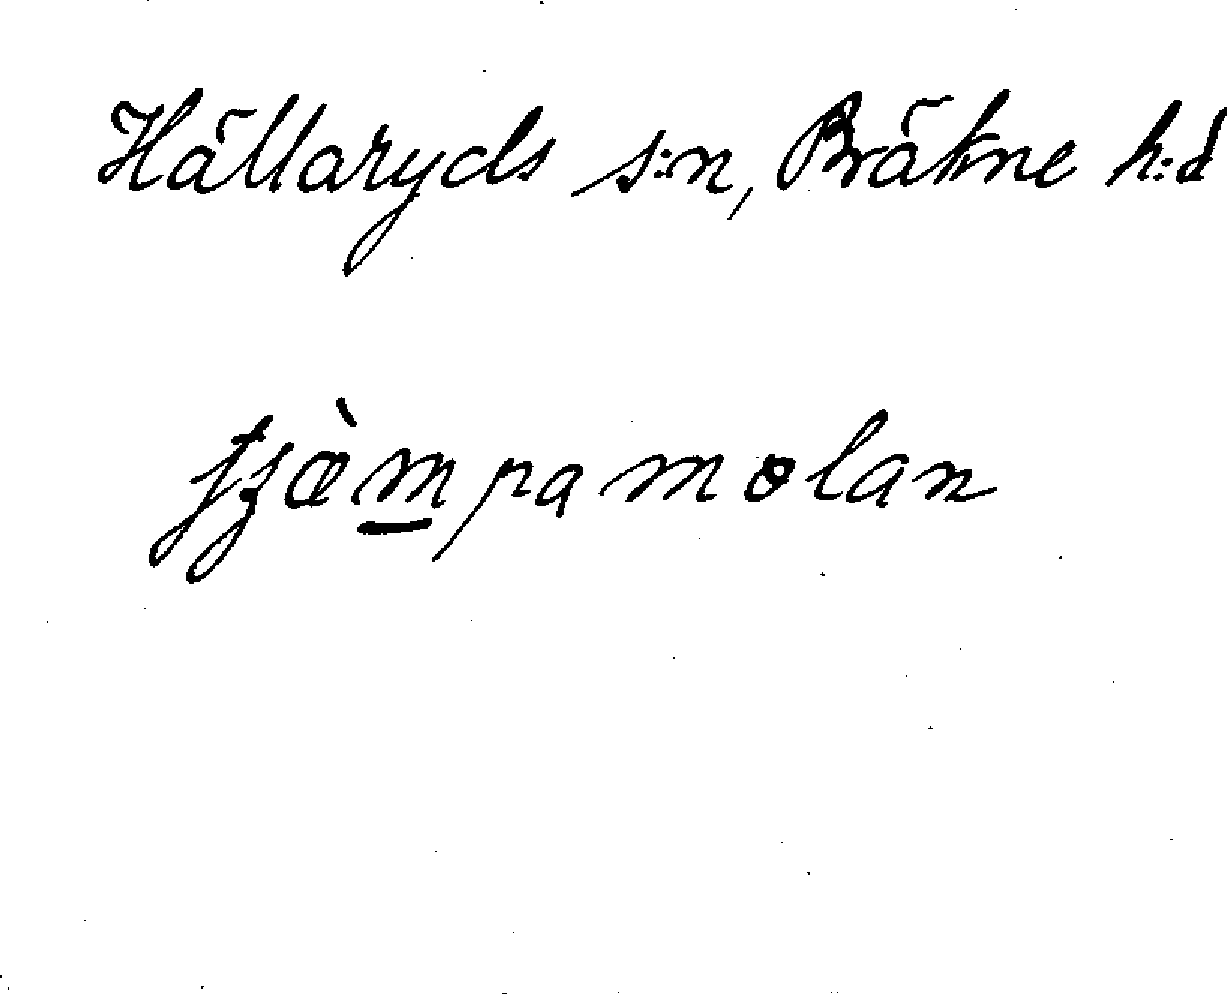 Hällaryds s:n, Bräkne h:d
tjæ̀m̲pamolan